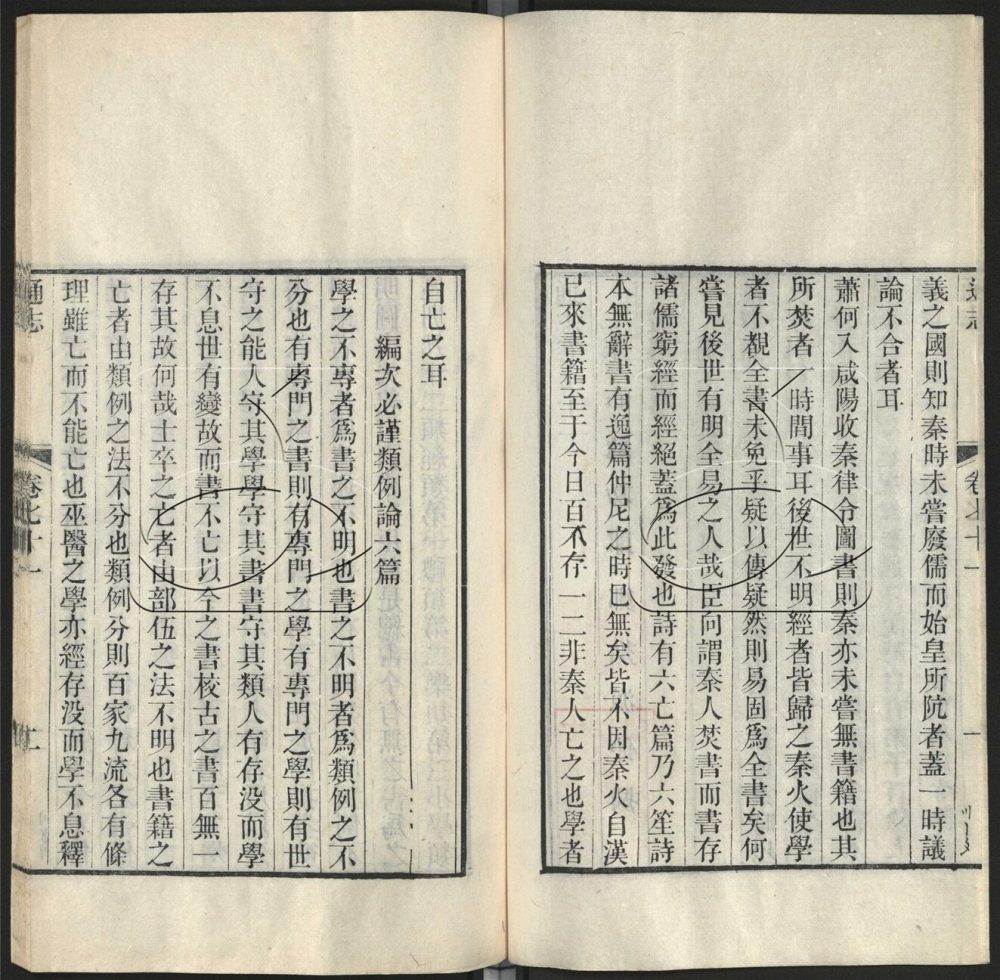 通志
卷七十一
一
義之國則知秦時未嘗廢儒而始皇所阬者蓋一時議
論不合者耳
蕭何入咸陽收秦律令圖書則秦亦未嘗無書籍也其
所焚者一時間事耳後世不明經者皆歸之秦火使學
者不覩全書未免乎疑以傳疑然則易固爲全書矣何
嘗見後世有明全易之人哉臣向謂秦人焚書而書存
諸儒窮經而經絕蓋爲此發也詩有六亡篇乃六笙詩
本無辭書有逸篇仲尼之時已無矣皆不因秦火自漢
已來書籍至于今日百不存一二非秦人亡之也學者
自亡之耳
編次必謹類例論六篇
學之不專者爲書之不明也書之不明者爲類例之不
分也有專門之書則有專門之學有專門之學則有世
守之能人守其學學守其書書守其類人有存没而學
不息世有變故而書不亡以今之書校古之書百無一
存其故何哉士卒之亡者由部伍之法不明也書籍之
亡者由類例之法不分也類例分則百家九流各有條
理雖亡而不能亡也巫醫之學亦經存没而學不息釋
通志
卷七十一
二